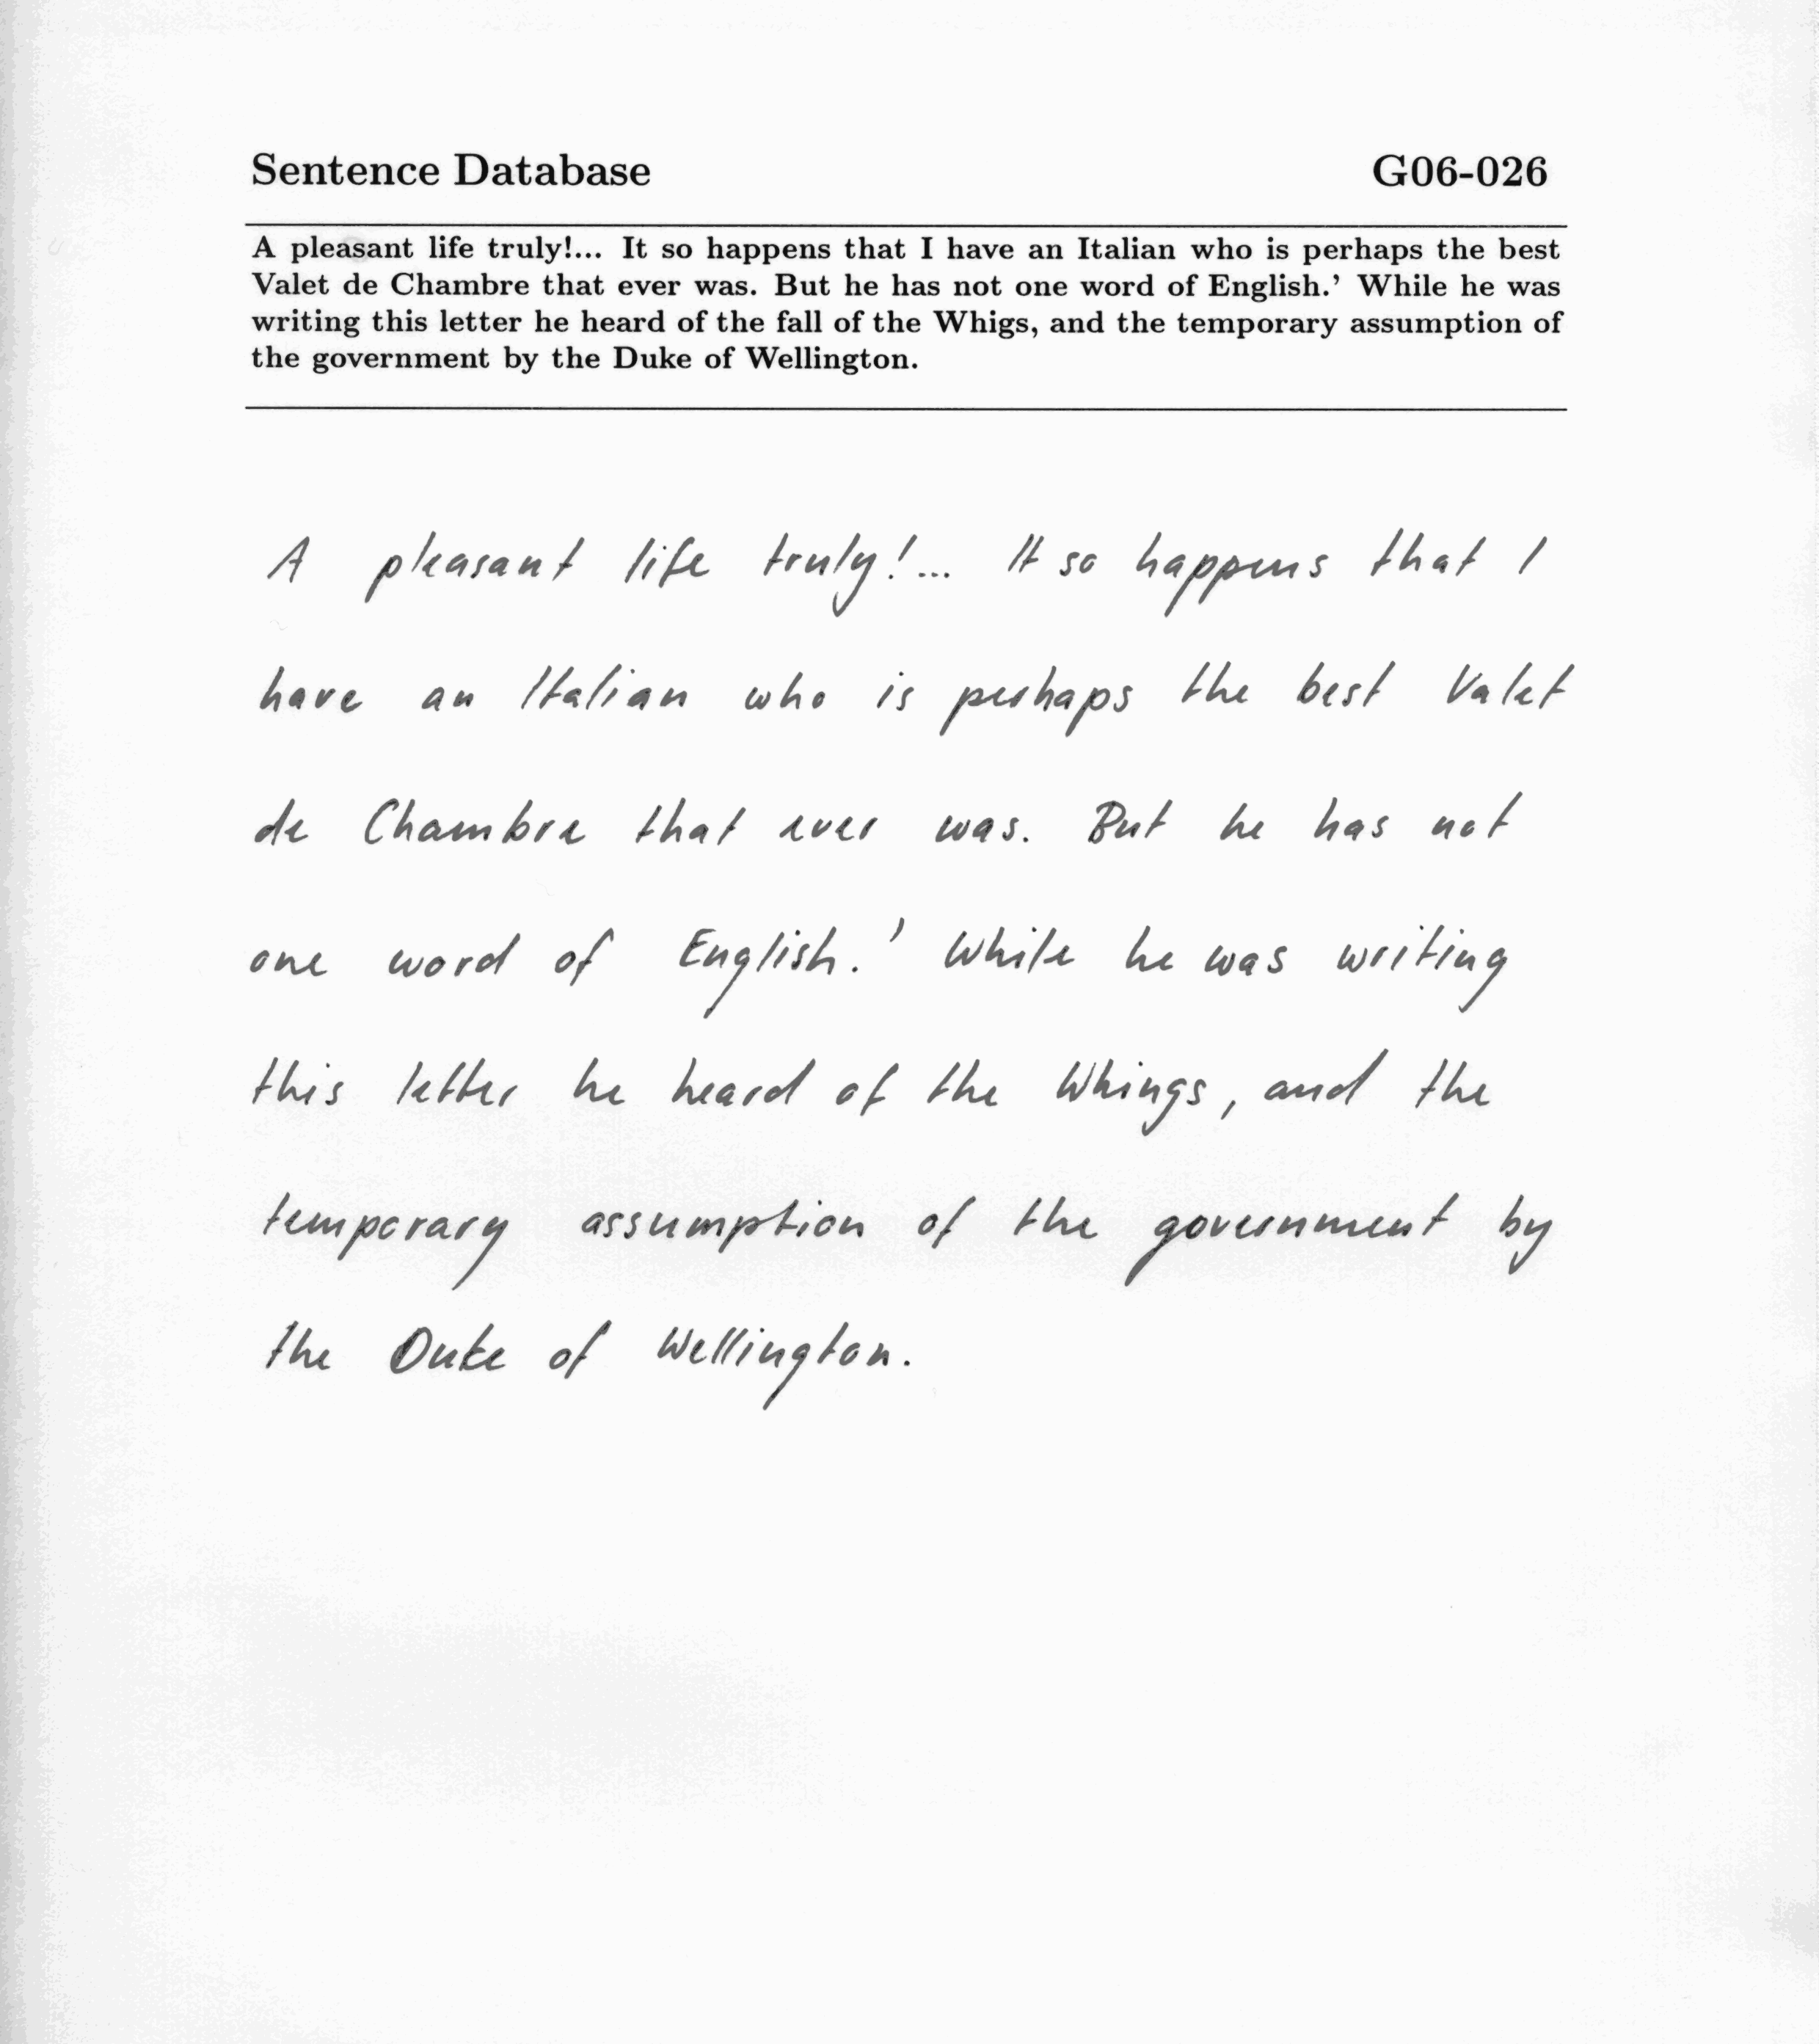 Sentence Database G06-026
A pleasant life truly!... It so happens that I have an Italian who is perhaps the best
Valet de Chambre that ever was. But he has not one word of English.' While he was
writing this letter he heard of the fall of the Whigs, and the temporary assumption of
the government by the Duke of Wellington.
A pleasant life truly!... It so happens that I
have an Italian who is perhaps the best Valet
de Chambre that ever was. But he has not
one word of English.' While he was writing
this letter he heard of the Whings, and the
temporary assumption of the government by
the Duke of Wellington.